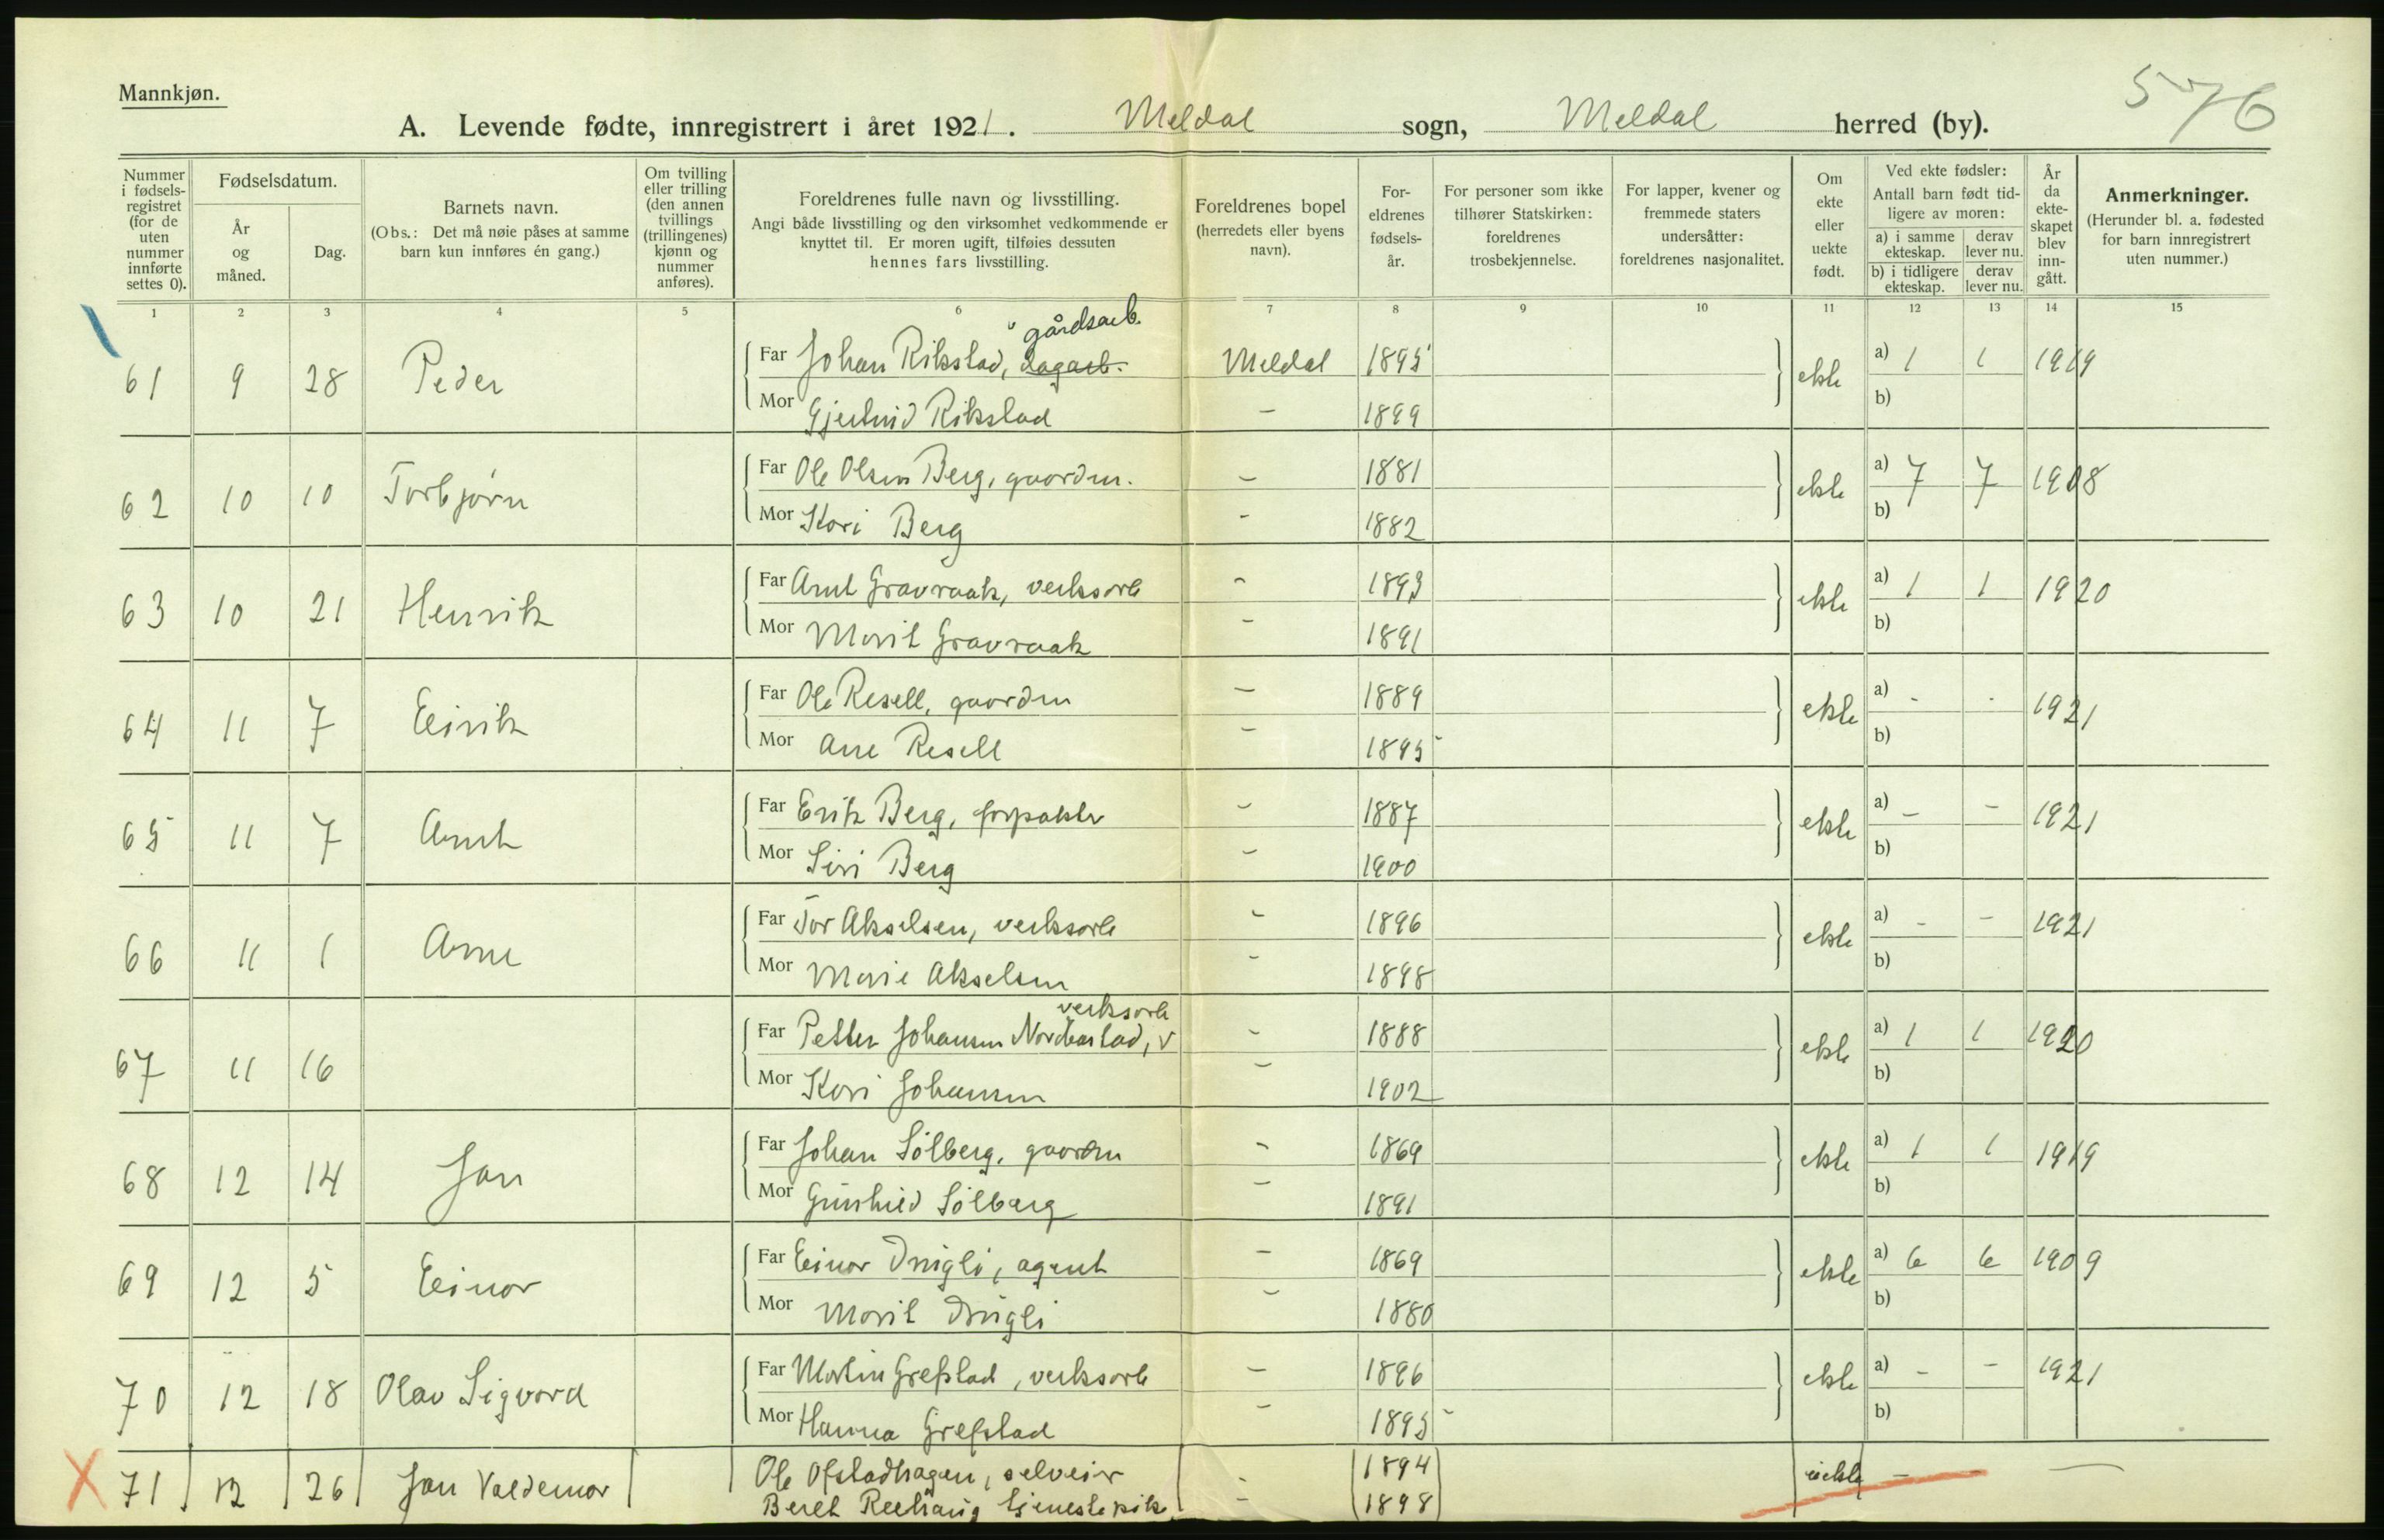 Mannkjøn.
576
A. Levende fødte, innregistrert i året 1921. Meldal sogn, Meldal herred (by).
Nummer i fødsels-registret (for de uten nummer innførte settes 0).
Fødselsdatum.
År og måned.
Dag.
Barnets navn.
(Obs.: Det må nøie påses at samme barn kun innføres én gang.)
Om tvilling eller trilling (den annen tvillings (trillingenes) kjønn og nummer anføres).
Foreldrenes fulle navn og livsstilling.
Angi både livsstilling og den virksomhet vedkommende er knyttet til. Er moren ugift, tilføies dessuten hennes fars livsstilling.
Foreldrenes bopel (herredets eller byens navn).
For-eldrenes fødsels-år.
For personer som ikke tilhører Statskirken: foreldrenes trosbekjennelse.
For lapper, kvener og fremmede staters undersåtter: foreldrenes nasjonalitet.
Om ekte eller uekte født.
Ved ekte fødsler:
Antall barn født tid-ligere av moren:
a) i samme ekteskap.
derav lever nu.
b) i tidligere ekteskap.
derav lever nu.
År da ekte-skapet blev inn-gått.
Anmerkninger.
(Herunder bl. a. fødested for barn innregistrert uten nummer.)
1 2 3 4 5 6 7 8 9 10 11 12 13 14 15
gårdsarb.
61 9 28 Peder Far Johan Rikstad, dagarb. Meldal 1895 ekte a) 1 1 1919
Mor Gjertrud Rikstad - 1899 b)
62 10 10 Torbjørn Far Ole Olsen Berg, gaardm. - 1881 ekte a) 7 7 1908
Mor Kari Berg - 1882 b)
63 10 21 Henrik Far Arnt Gravraak, verksarb - 1893 ekte a) 1 1 1920
Mor Marit Gravraak - 1891 b)
64 11 7 Eirik Far Ole Resell, gaardm - 1889 ekte a) - - 1921
Mor Ane Resell - 1895 b)
65 11 7 Arnt Far Erik Berg, forpakter - 1887 ekte a) - - 1921
Mor Siri Berg - 1900 b)
66 11 1 Arne Far Tor Akselsen, verksarb - 1896 ekte a) - - 1921
Mor Marie Akselsen - 1898 b)
verksarb
67 11 16 Far Petter Johansen Nordbastad, v - 1888 ekte a) 1 1 1920
Mor Kari Johansen - 1902 b)
68 12 14 Jan Far Johan Sølberg, gaardm - 1869 ekte a) 1 1 1919
Mor Gunhild Sølberg - 1891 b)
69 12 5 Einar Far Einar Drugli, agent - 1869 ekte a) 6 6 1909
Mor Marit Drugli - 1880 b)
70 12 18 Olav Sigvard Far Martin Grefstad, verksarb - 1896 ekte a) - - 1921
Mor Hanna Grefstad - 1895 b)
X 71 12 26 Jan Valdemar Ole Ofstadhagen, selveier - 1894 uekte - —
Beret Reehaug tjenestepike - 1898